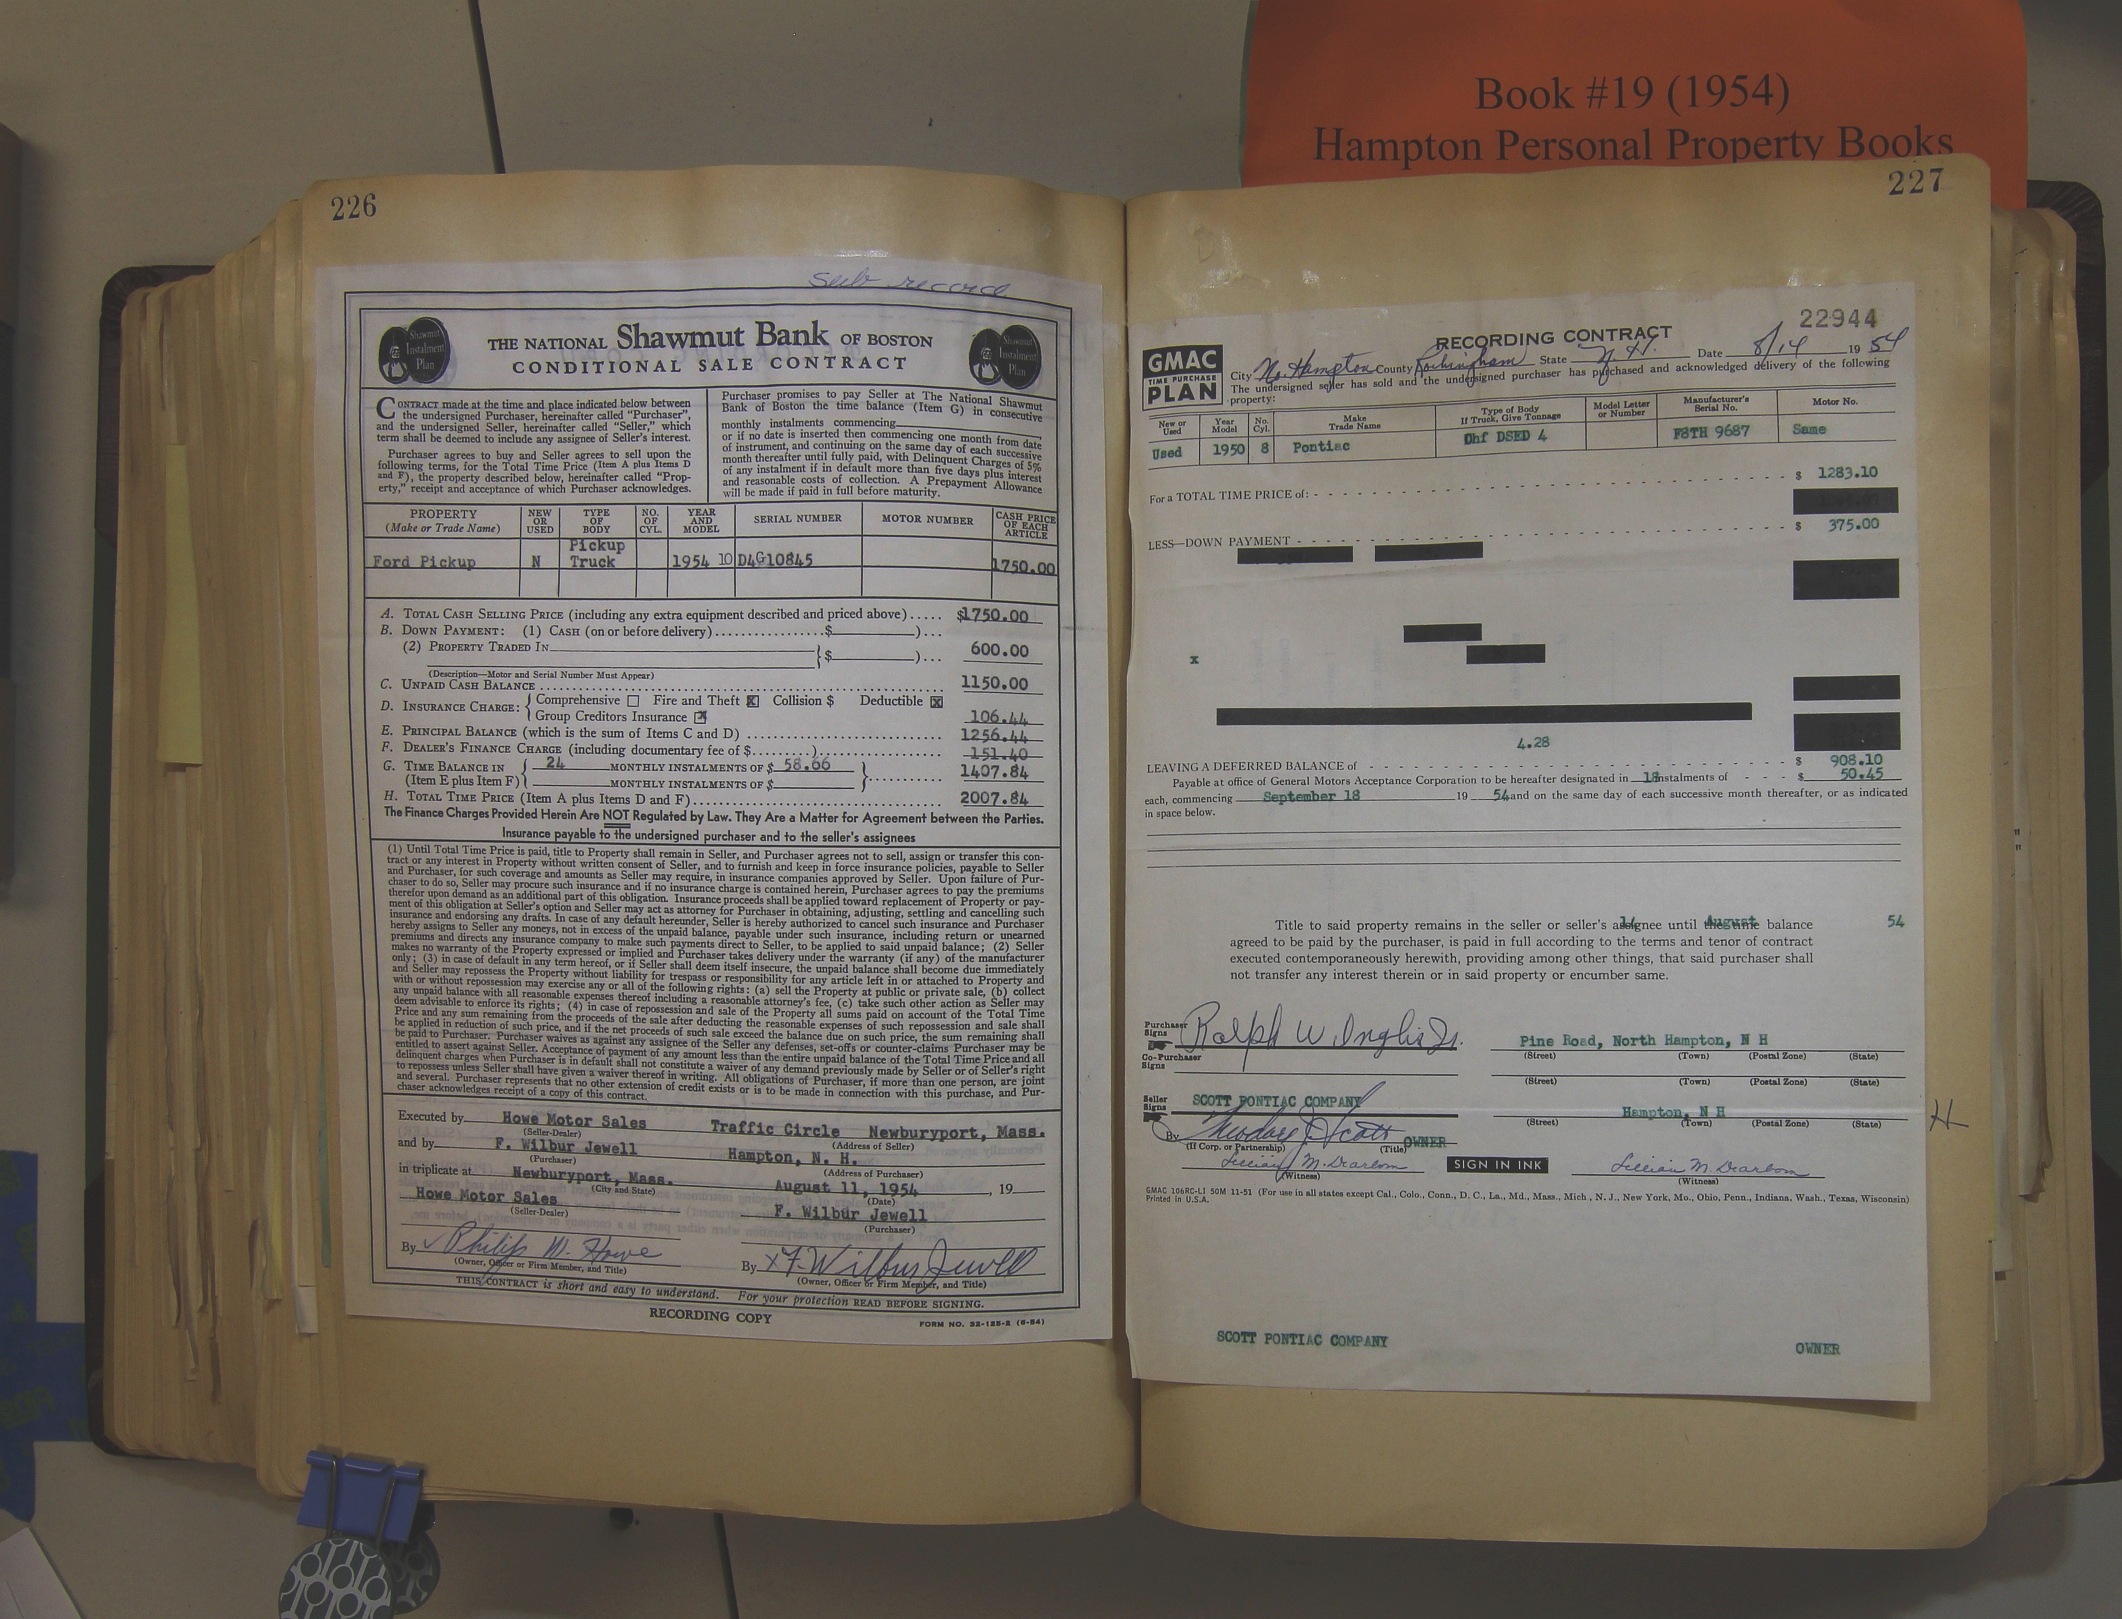 Book #19 (1954)
Hampton Personal Property Books
226
Shawmut
Instalment
Plan
THE NATIONAL Shawmut Bank OF BOSTON
CONDITIONAL SALE CONTRACT
Shawmut
Instalment
Plan
CONTRACT made at the time and place indicated below between
the undersigned Purchaser, hereinafter called "Purchaser",
and the undersigned Seller, hereinafter called "Seller," which
term shall be deemed to include any assignee of Seller's interest.
Purchaser agrees to buy and Seller agrees to sell upon the
following terms, for the Total Time Price (Item A plus Items D
and F), the property described below, hereinafter called "Prop-
erty," receipt and acceptance of which Purchaser acknowledges.
Purchaser promises to pay Seller at The National Shawmut
Bank of Boston the time balance (Item G) in consecutive
monthly instalments commencing
or if no date is inserted then commencing one month from date
of instrument, and continuing on the same day of each successive
month thereafter until fully paid, with Delinquent Charges of 5%
of any instalment if in default more than five days plus interest
and reasonable costs of collection. A Prepayment Allowance
will be made if paid in full before maturity.
PROPERTY (Make or Trade Name) NEW OR USED TYPE OF BODY NO. OF CYL. YEAR AND MODEL SERIAL NUMBER MOTOR NUMBER CASH PRICE OF EACH ARTICLE
Ford Pickup N Pickup Truck 1954 10 D4G10845 1750.00
A. TOTAL CASH SELLING PRICE (including any extra equipment described and priced above)..... $1750.00
B. DOWN PAYMENT: (1) CASH (on or before delivery)................$ )...
(2) PROPERTY TRADED IN {$ )... 600.00
(Description—Motor and Serial Number Must Appear)
C. UNPAID CASH BALANCE ........ 1150.00
D. INSURANCE CHARGE: { Comprehensive ☐ Fire and Theft ☒ Collision $ Deductible ☒
Group Creditors Insurance ☒ 106.44
E. PRINCIPAL BALANCE (which is the sum of Items C and D) ........ 1256.44
F. DEALER'S FINANCE CHARGE (including documentary fee of $.........)........ 151.40
G. TIME BALANCE IN { 24 MONTHLY INSTALMENTS OF $ 58.66
(Item E plus Item F) MONTHLY INSTALMENTS OF $ }........ 1407.84
H. TOTAL TIME PRICE (Item A plus Items D and F)........ 2007.84
The Finance Charges Provided Herein Are NOT Regulated by Law. They Are a Matter for Agreement between the Parties.
Insurance payable to the undersigned purchaser and to the seller's assignees
(1) Until Total Time Price is paid, title to Property shall remain in Seller, and Purchaser agrees not to sell, assign or transfer this con-
tract or any interest in Property without written consent of Seller, and to furnish and keep in force insurance policies, payable to Seller
and Purchaser, for such coverage and amounts as Seller may require, in insurance companies approved by Seller. Upon failure of Pur-
chaser to do so, Seller may procure such insurance and if no insurance charge is contained herein, Purchaser agrees to pay the premiums
therefor upon demand as an additional part of this obligation. Insurance proceeds shall be applied toward replacement of Property or pay-
ment of this obligation at Seller's option and Seller may act as attorney for Purchaser in obtaining, adjusting, settling and cancelling such
insurance and endorsing any drafts. In case of any default hereunder, Seller is hereby authorized to cancel such insurance and Purchaser
hereby assigns to Seller any moneys, not in excess of the unpaid balance, payable under such insurance, including return or unearned
premiums and directs any insurance company to make such payments direct to Seller, to be applied to said unpaid balance; (2) Seller
makes no warranty of the Property expressed or implied and Purchaser takes delivery under the warranty (if any) of the manufacturer
only; (3) in case of default in any term hereof, or if Seller shall deem itself insecure, the unpaid balance shall become due immediately
and Seller may repossess the Property without liability for trespass or responsibility for any article left in or attached to Property and
with or without repossession may exercise any or all of the following rights: (a) sell the Property at public or private sale, (b) collect
any unpaid balance with all reasonable expenses thereof including a reasonable attorney's fee, (c) take such other action as Seller may
deem advisable to enforce its rights; (4) in case of repossession and sale of the Property all sums paid on account of the Total Time
Price and any sum remaining from the proceeds of the sale after deducting the reasonable expenses of such repossession and sale shall
be applied in reduction of such price, and if the net proceeds of such sale exceed the balance due on such price, the sum remaining shall
be paid to Purchaser. Purchaser waives as against any assignee of the Seller any defenses, set-offs or counter-claims Purchaser may be
entitled to assert against Seller. Acceptance of payment of any amount less than the entire unpaid balance of the Total Time Price and all
delinquent charges when Purchaser is in default shall not constitute a waiver of any demand previously made by Seller or of Seller's right
to repossess unless Seller shall have given a waiver thereof in writing. All obligations of Purchaser, if more than one person, are joint
and several. Purchaser represents that no other extension of credit exists or is to be made in connection with this purchase, and Pur-
chaser acknowledges receipt of a copy of this contract.
Executed by Howe Motor Sales Traffic Circle Newburyport, Mass.
(Seller-Dealer) (Address of Seller)
and by F. Wilbur Jewell Hampton, N. H.
(Purchaser) (Address of Purchaser)
in triplicate at Newburyport, Mass. August 11, 1954, 19
(City and State) (Date)
Howe Motor Sales F. Wilbur Jewell
(Seller-Dealer) (Purchaser)
By Philip W. Howe By x F. Wilbur Jewell
(Owner, Officer or Firm Member, and Title) (Owner, Officer or Firm Member, and Title)
THIS CONTRACT is short and easy to understand. For your protection READ BEFORE SIGNING.
RECORDING COPY
FORM NO. 32-125-2 (6-54)
227
22944
GMAC
TIME PURCHASE
PLAN
RECORDING CONTRACT
City No. Hampton County Rockingham State N. H. Date 8/14 19 54
The undersigned seller has sold and the undersigned purchaser has purchased and acknowledged delivery of the following
property:
New or Used Year Model No. Cyl. Make Trade Name Type of Body If Truck, Give Tonnage Model Letter or Number Manufacturer's Serial No. Motor No.
Used 1950 8 Pontiac Chf DSED 4 F8TH 9687 Same
For a TOTAL TIME PRICE of: $ 1283.10
LESS—DOWN PAYMENT $ 375.00
x
4.28
LEAVING A DEFERRED BALANCE of $ 908.10
Payable at office of General Motors Acceptance Corporation to be hereafter designated in 18 instalments of $ 50.45
each, commencing September 18 19 54 and on the same day of each successive month thereafter, or as indicated
in space below.
Title to said property remains in the seller or seller's assignee until the time balance
14 August 54
agreed to be paid by the purchaser, is paid in full according to the terms and tenor of contract
executed contemporaneously herewith, providing among other things, that said purchaser shall
not transfer any interest therein or in said property or encumber same.
Purchaser Signs Ralph W Inglis Jr. Pine Road, North Hampton, N H
(Street) (Town) (Postal Zone) (State)
Co-Purchaser Signs
(Street) (Town) (Postal Zone) (State)
Seller Signs SCOTT PONTIAC COMPANY Hampton, N H
(Street) (Town) (Postal Zone) (State)
H
By Theodore J. Scott OWNER
(If Corp. or Partnership) (Title)
Lillian M. Dearborn SIGN IN INK Lillian M. Dearborn
(Witness) (Witness)
GMAC 106RC-LI 50M 11-51 (For use in all states except Cal., Colo., Conn., D. C., La., Md., Mass., Mich., N. J., New York, Mo., Ohio, Penn., Indiana, Wash., Texas, Wisconsin)
Printed in U.S.A.
SCOTT PONTIAC COMPANY OWNER